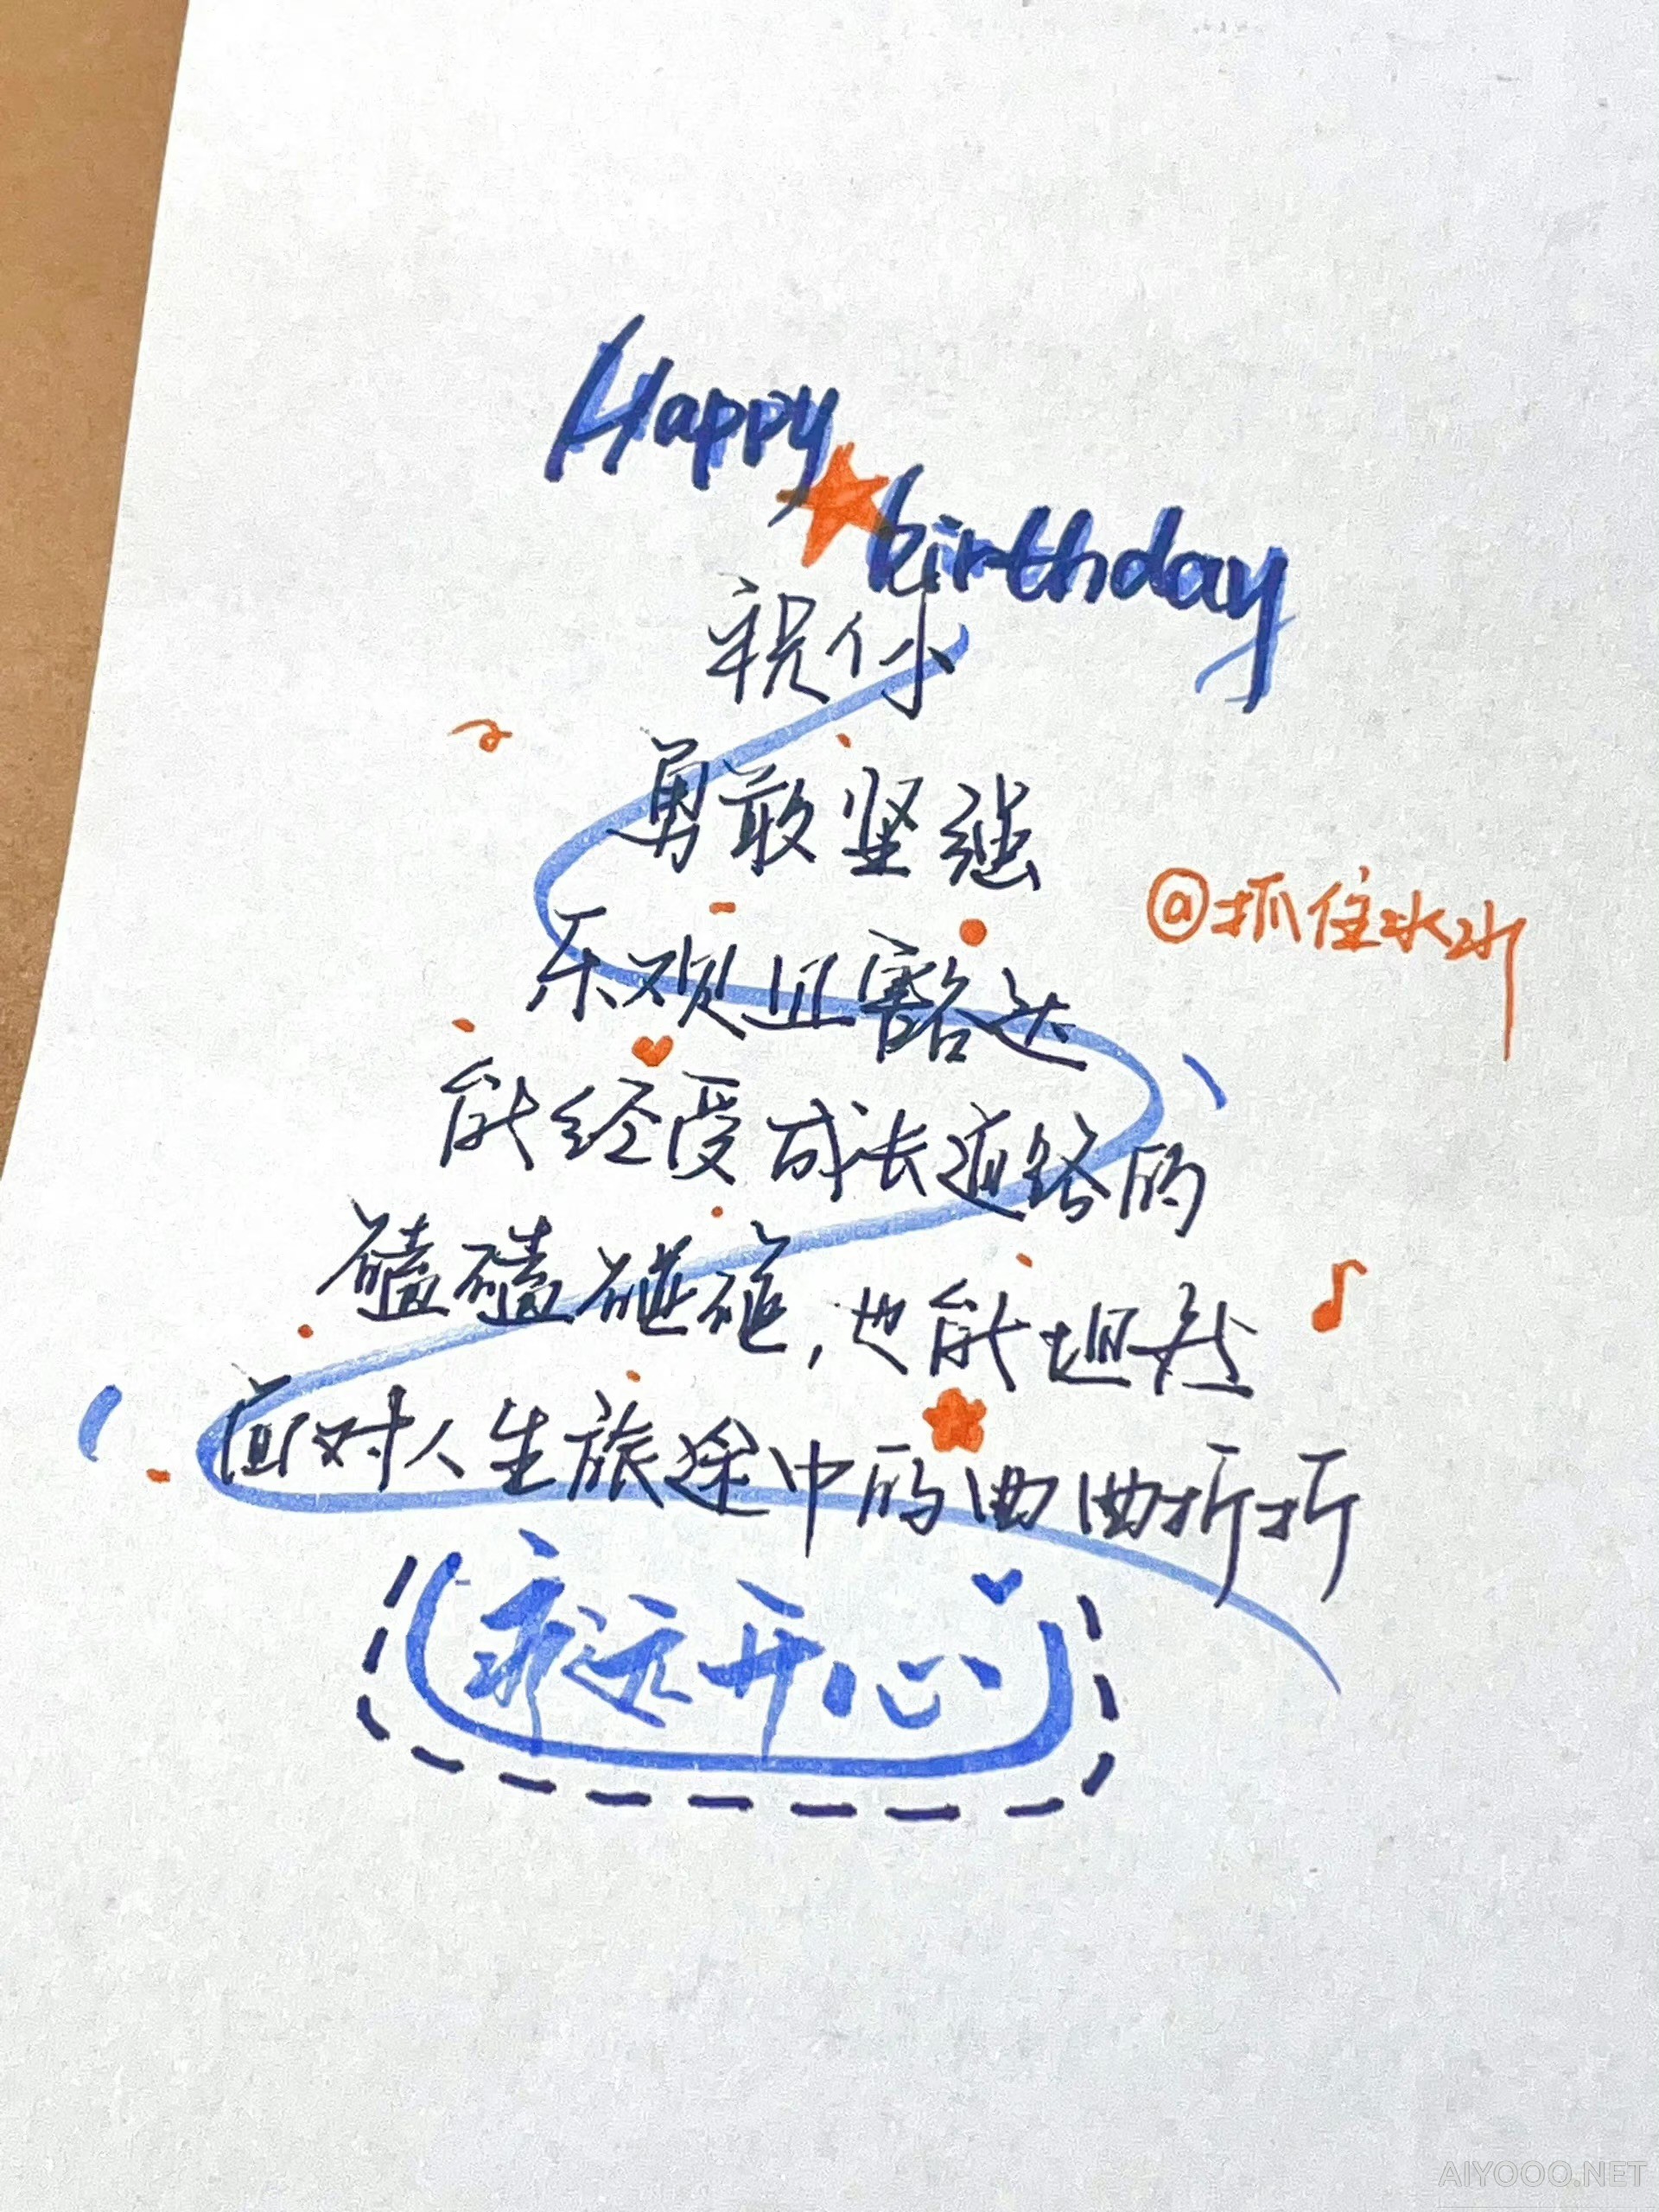 Happy
birthday
祝你
勇敢坚强
@抓住水水
乐观且豁达
能经受成长道路的
磕磕碰碰,也能坦然
面对人生旅途中的曲曲折折
永远开心
AIYOOO.NET